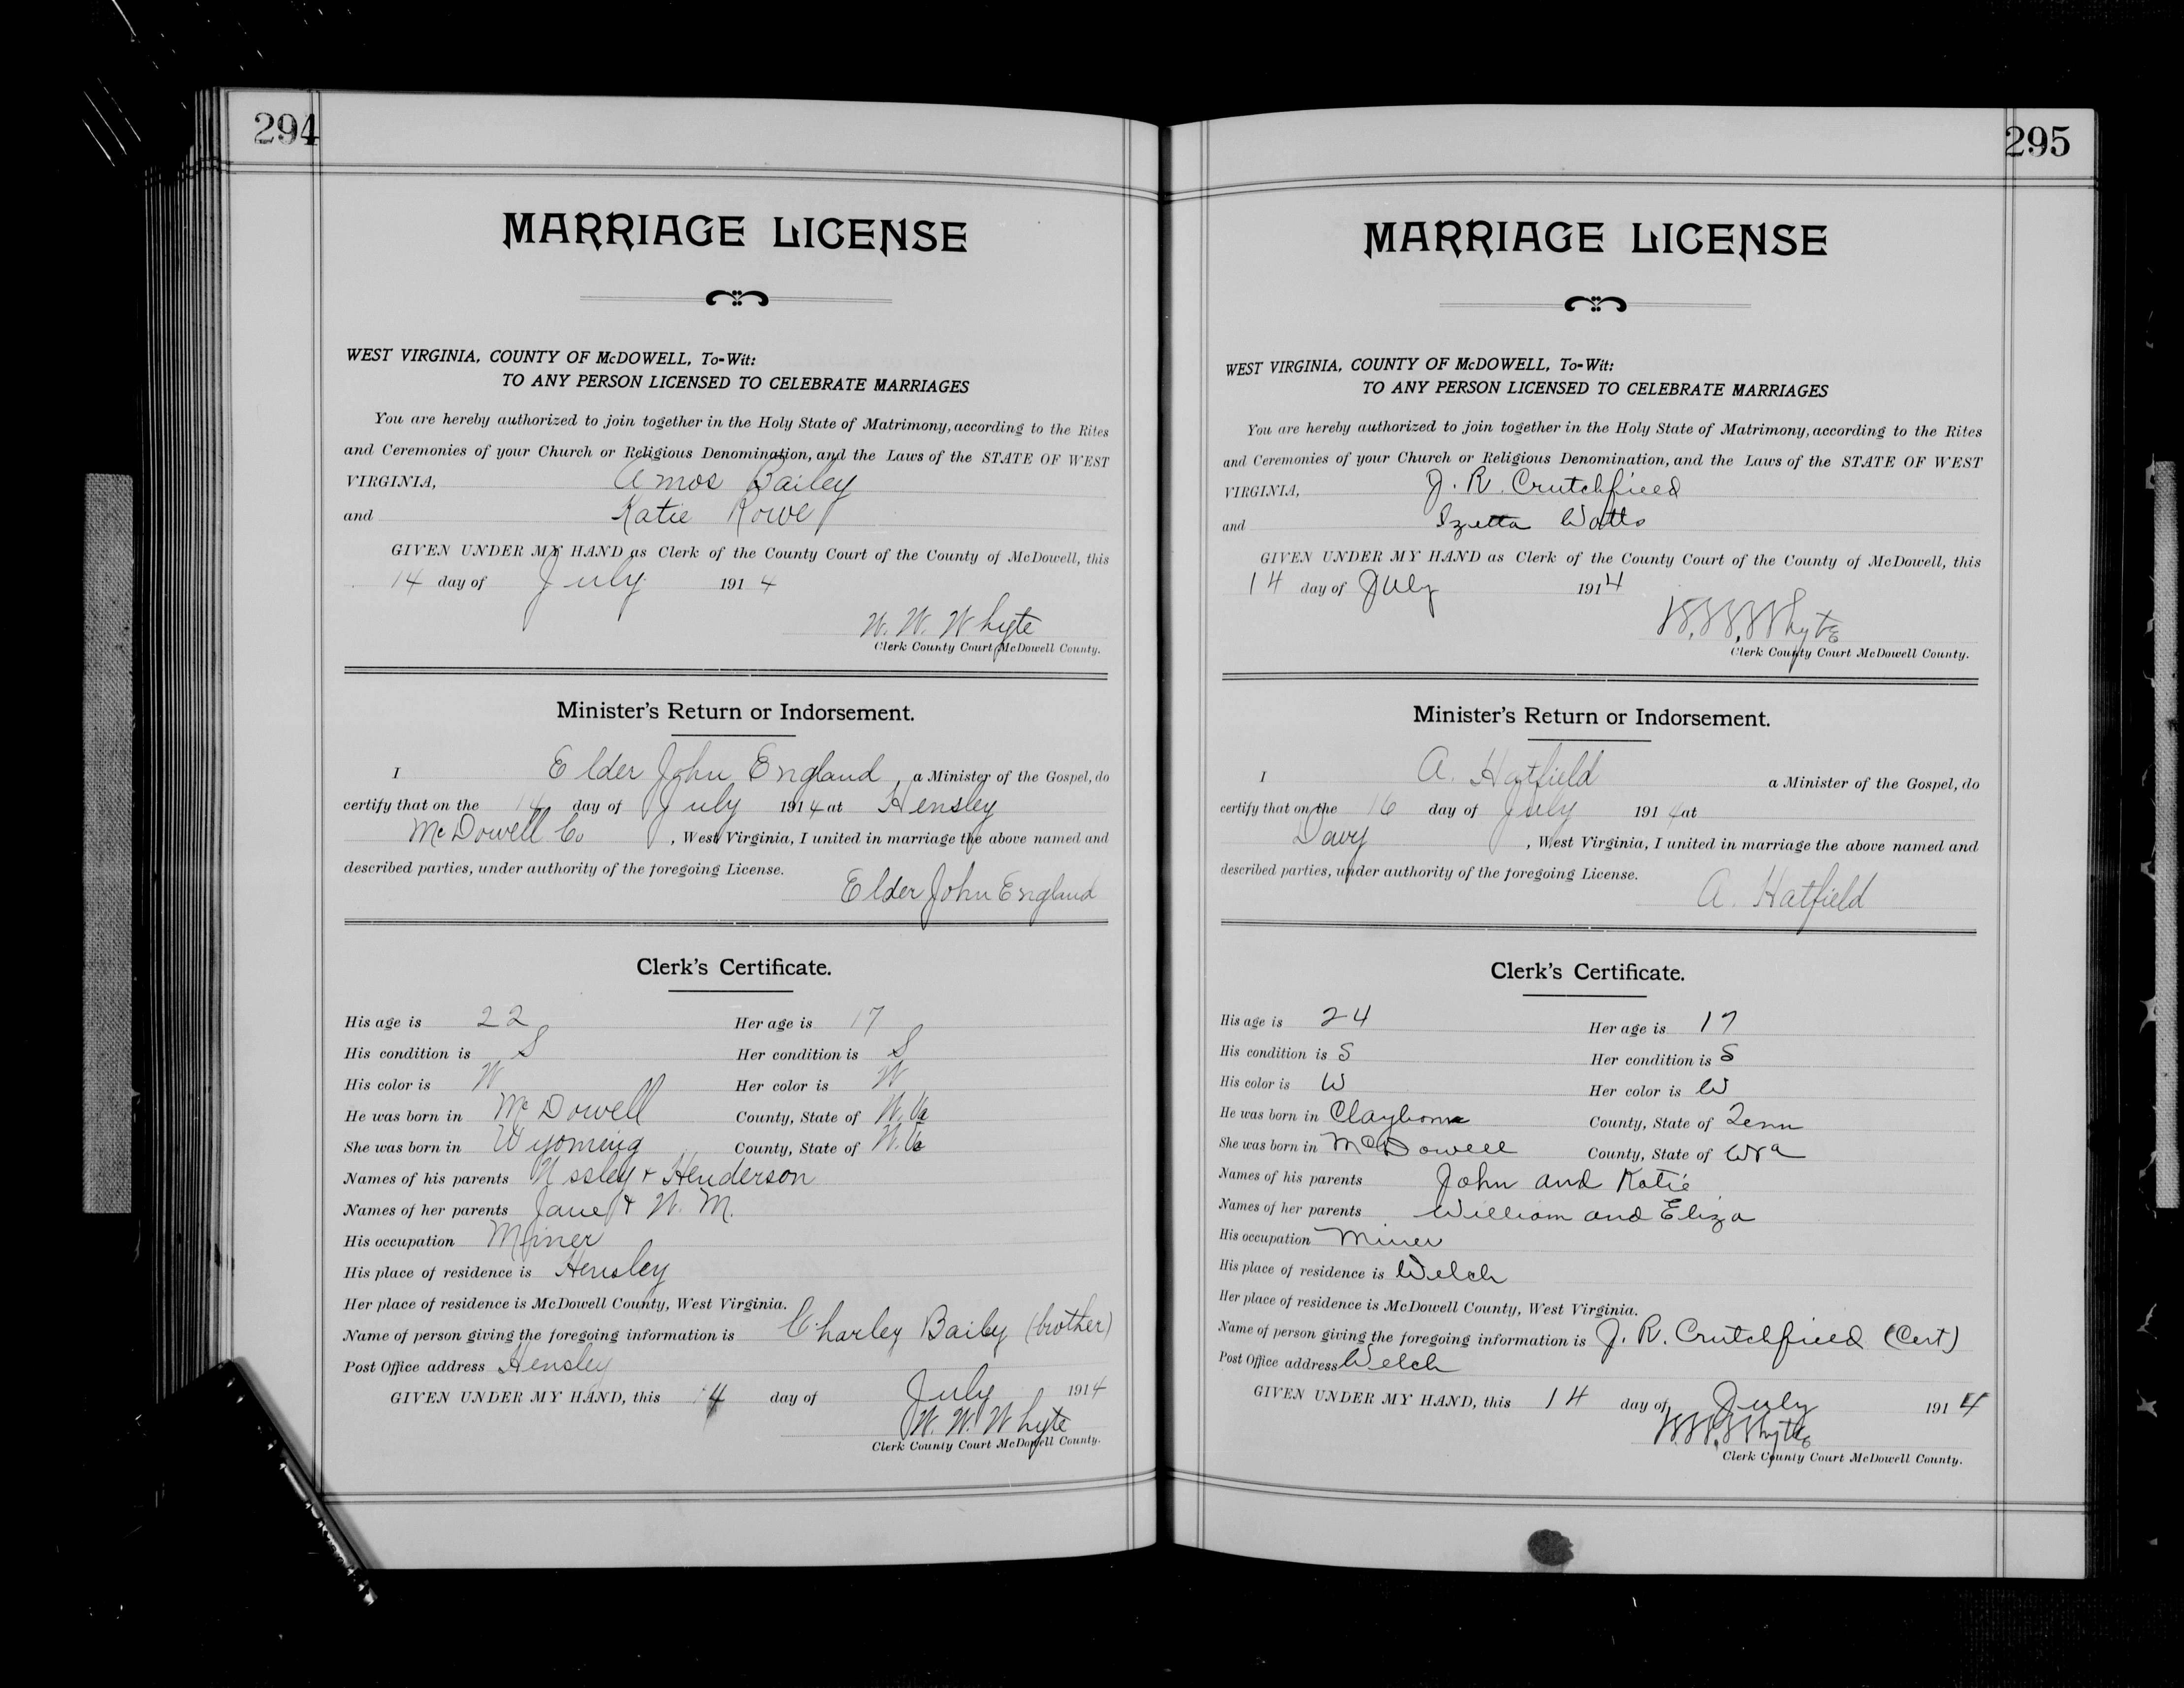 294
MARRIAGE LICENSE
WEST VIRGINIA, COUNTY OF McDOWELL, To-Wit:
TO ANY PERSON LICENSED TO CELEBRATE MARRIAGES
You are hereby authorized to join together in the Holy State of Matrimony, according to the Rites
and Ceremonies of your Church or Religious Denomination, and the Laws of the STATE OF WEST
VIRGINIA, Amos Bailey
and Katie Rowe
GIVEN UNDER MY HAND as Clerk of the County Court of the County of McDowell, this
14 day of July 1914
W. W. Whyte
Clerk County Court McDowell County.
Minister's Return or Indorsement.
I Elder John England, a Minister of the Gospel, do
certify that on the day of July 1914 at Hensley
McDowell Co, West Virginia, I united in marriage the above named and
described parties, under authority of the foregoing License.
Elder John England
Clerk's Certificate.
His age is 22 Her age is 17
His condition is S Her condition is S
His color is W Her color is W
He was born in McDowell County, State of W.Va
She was born in Wyoming County, State of W.Va
Names of his parents & Henderson
Names of her parents Jane & W. M.
His occupation Miner
His place of residence is Hensley
Her place of residence is McDowell County, West Virginia.
Name of person giving the foregoing information is Charley Bailey (brother)
Post Office address Hensley
GIVEN UNDER MY HAND, this 14 day of July 1914
W. W. Whyte
Clerk County Court McDowell County.
295
MARRIAGE LICENSE
WEST VIRGINIA, COUNTY OF McDOWELL, To-Wit:
TO ANY PERSON LICENSED TO CELEBRATE MARRIAGES
You are hereby authorized to join together in the Holy State of Matrimony, according to the Rites
and Ceremonies of your Church or Religious Denomination, and the Laws of the STATE OF WEST
VIRGINIA, J. R. Crutchfield
and Izetta Watts
GIVEN UNDER MY HAND as Clerk of the County Court of the County of McDowell, this
14 day of July 1914
W. W. Whyte
Clerk County Court McDowell County.
Minister's Return or Indorsement.
I A. Hatfield a Minister of the Gospel, do
certify that on the 16 day of July 1914 at
Davy, West Virginia, I united in marriage the above named and
described parties, under authority of the foregoing License.
A. Hatfield
Clerk's Certificate.
His age is 24 Her age is 17
His condition is S Her condition is S
His color is W Her color is W
He was born in Clayborne County, State of Tenn
She was born in McDowell County, State of Wva
Names of his parents John and Katie
Names of her parents William and Eliza
His occupation Miner
His place of residence is Welch
Her place of residence is McDowell County, West Virginia.
Name of person giving the foregoing information is J. R. Crutchfield (Cert)
Post Office address Welch
GIVEN UNDER MY HAND, this 14 day of July 1914
W. W. Whyte
Clerk County Court McDowell County.